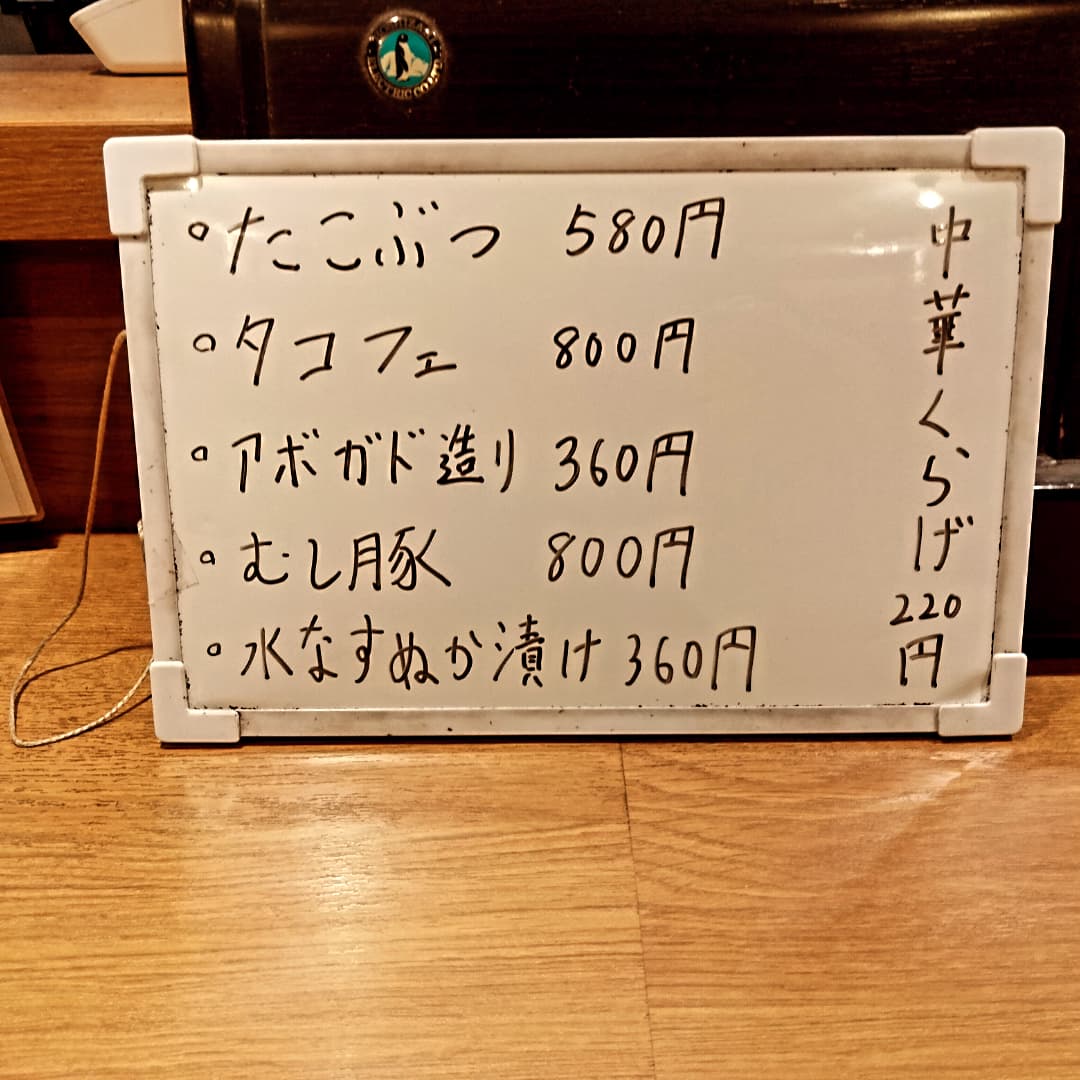 ・たこぶつ 580円
・タコフェ 800円
・アボガド造り 360円
・むし豚 800円
・水なすぬか漬け 360円
中華くらげ220円